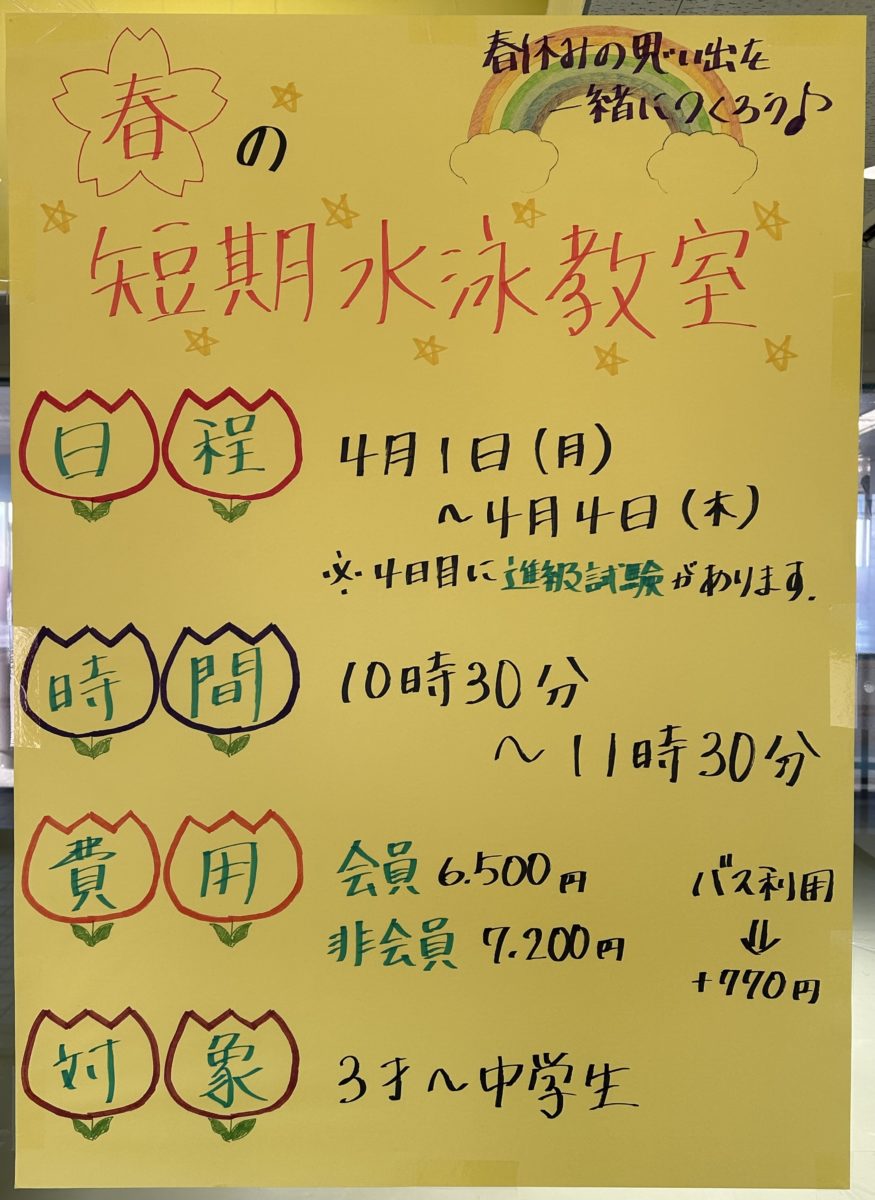 春の
春休みの思い出を
一緒につくろう♪
短期水泳教室
日程
4月1日(月)
~4月4日(木)
※4日目に進級試験があります.
時間
10時30分
~11時30分
費用
会員 6.500円
非会員 7.200円
バス利用
⇓
+770円
対象
3才~中学生